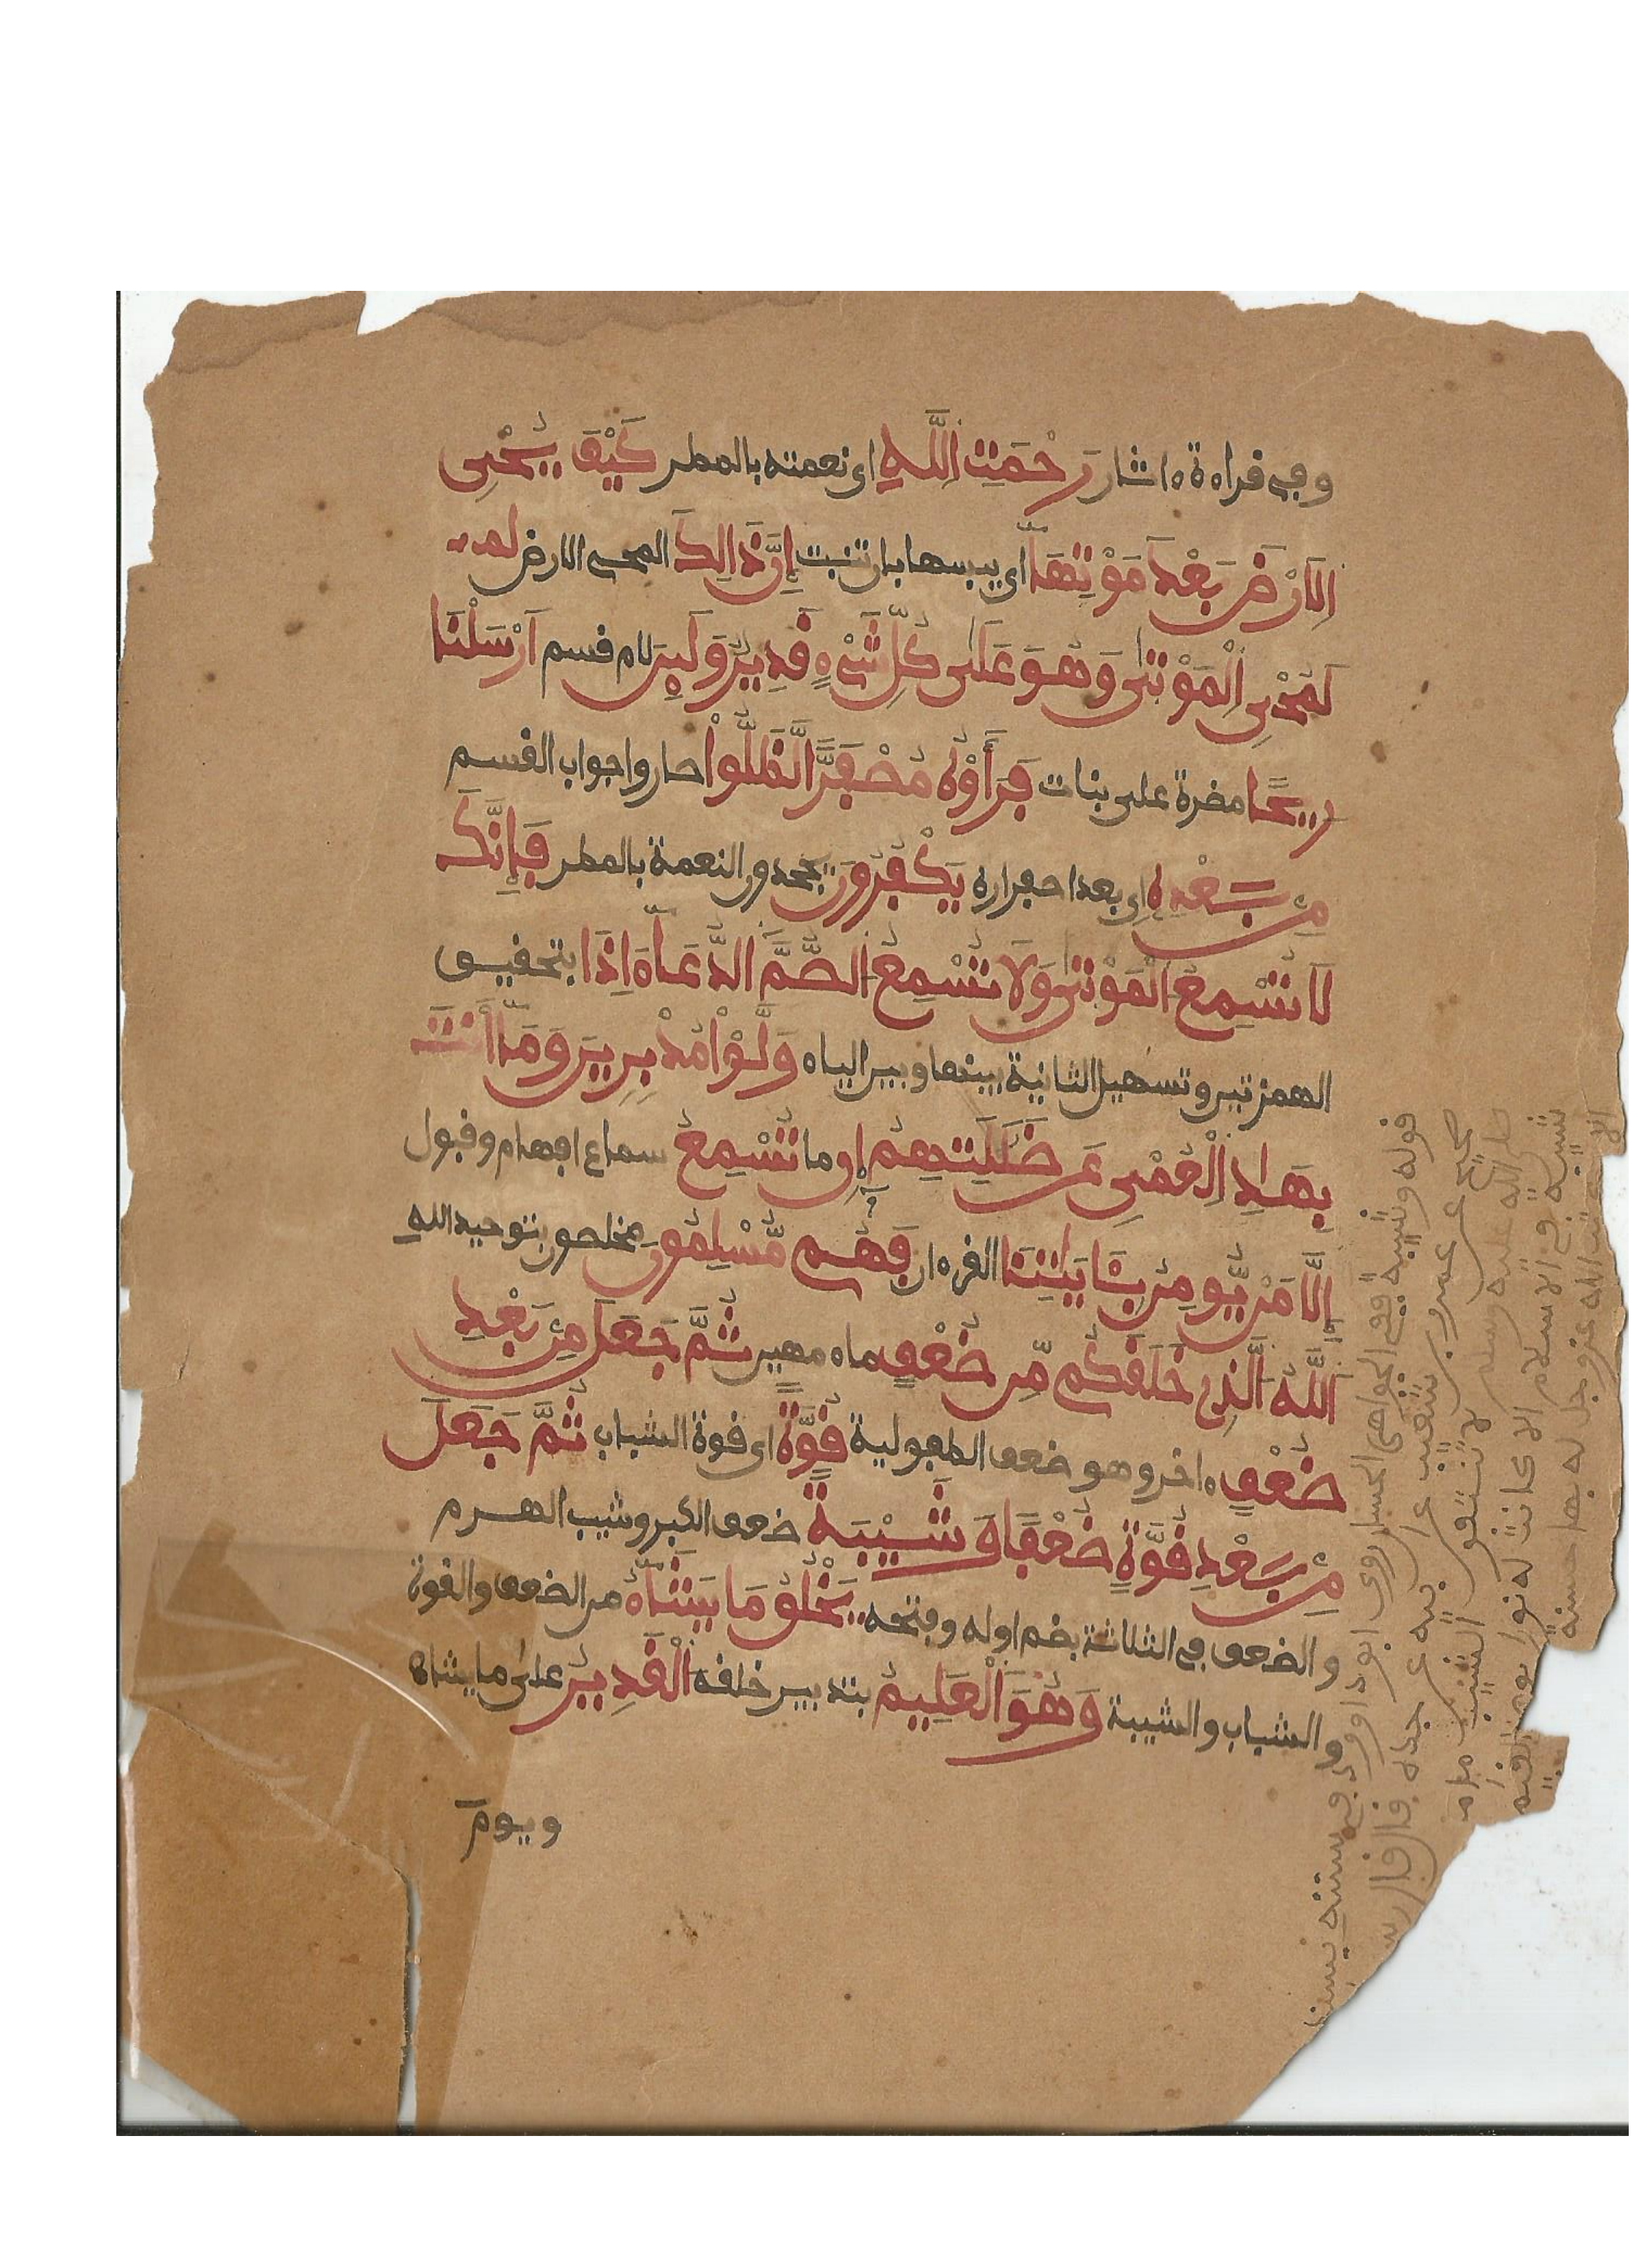 وفي قراءة ءاثار رَحْمَتِ اللَّهِ اي نعمته بالمطر كَيْفَ يُحْيِي
الَارْضَ بَعْدَ مَوْتِهَا اي يبسها بان تنبت إِنَّ ذَالِكَ المحيي الارض لم
لَمُحْيِي الْمَوْتَى وَهُوَ عَلَى كُلِّ شَيْءٍ قَدِيرٌ وَلَئِن لام قسم اَرْسَلْنَا
رِيحًا مضرة على نبات فَرَأَوْهُ مُصْفَرًّا لَّظَلُّوا صاروا جواب القسم
مِن بَعْدِهِ اي بعد اصفراره يَكْفُرُونَ يجحدون النعمة بالمطر فَإِنَّكَ
لَا تُسْمِعُ الْمَوْتَى وَلَا تُسْمِعُ الصُّمَّ الدُّعَاءَ اِذَا بتحقيق
الهمزتين وتسهيل الثانية بينها وبين الياء وَلَّوْا مُدْبِرِينَ وَمَا أَنتَ
بِهَادِ الْعُمْيِ عَن ضَلَالَتِهِمْ إِن ما تُسْمِعُ سماع افهام وقبول
إِلَّا مَنْ يُّومِنُ بِئَايَاتِنَا القرءان فَهُم مُّسْلِمُونَ مخلصون بتوحيد الله
اللَّهُ الَّذِي خَلَقَكُم مِّن ضُعْفٍ ماء مهين ثُمَّ جَعَلَ مِن بَعْدِ
ضُعْفٍ ءاخر وهو ضعف الطفولية قُوَّةً اي قوة الشباب ثُمَّ جَعَلَ
مِن بَعْدِ قُوَّةٍ ضُعْفًا وَشَيْبَةً ضعف الكبر وشيب الهرم
والضعف في الثلاثة بضم اوله وفتحه يَخْلُقُ مَا يَشَاءُ من الضعف والقوة
والشباب والشيبة وَهُوَ الْعَلِيمُ بتدبير خلقه الْقَدِيرُ على ما يشاء
ويوم
قوله وشيبة ففي الجواهر الحسان روى ابو داوود في سننه
صحيح عن عمرو بن شعيب عن ابيه عن جده قال قال رس
صلى الله عليه وسلم لا تنتفوا الشيب ما م
شيبة في الاسلام الا كانت له نورا يوم القيم
الا كتب الله عز وجل له بها حسنة